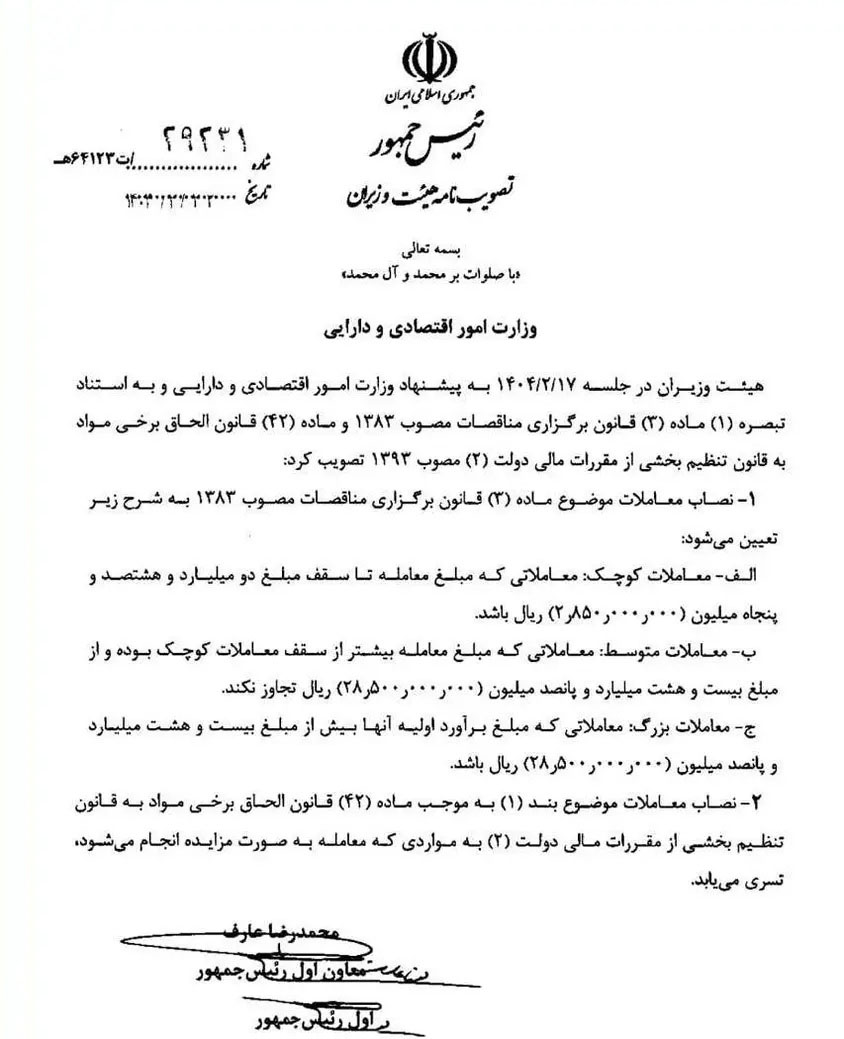 جمهوری اسلامی ایران
رئیس جمهور
تصویب نامه هیئت وزیران
شماره ۲۹۲۳۱/ت۶۴۱۲۳هـ
تاریخ
بسمه تعالی
«با صلوات بر محمد و آل محمد»
وزارت امور اقتصادی و دارایی
هیئت وزیران در جلسه ۱۴۰۴/۲/۱۷ به پیشنهاد وزارت امور اقتصادی و دارایی و به استناد
تبصره (۱) ماده (۳) قانون برگزاری مناقصات مصوب ۱۳۸۳ و ماده (۴۲) قانون الحاق برخی مواد
به قانون تنظیم بخشی از مقررات مالی دولت (۲) مصوب ۱۳۹۳ تصویب کرد:
۱- نصاب معاملات موضوع ماده (۳) قانون برگزاری مناقصات مصوب ۱۳۸۳ به شرح زیر
تعیین می‌شود:
الف- معاملات کوچک: معاملاتی که مبلغ معامله تا سقف مبلغ دو میلیارد و هشتصد و
پنجاه میلیون (۲ر۸۵۰ر۰۰۰ر۰۰۰) ریال باشد.
ب- معاملات متوسط: معاملاتی که مبلغ معامله بیشتر از سقف معاملات کوچک بوده و از
مبلغ بیست و هشت میلیارد و پانصد میلیون (۲۸ر۵۰۰ر۰۰۰ر۰۰۰) ریال تجاوز نکند.
ج- معاملات بزرگ: معاملاتی که مبلغ برآورد اولیه آنها بیش از مبلغ بیست و هشت میلیارد
و پانصد میلیون (۲۸ر۵۰۰ر۰۰۰ر۰۰۰) ریال باشد.
۲- نصاب معاملات موضوع بند (۱) به موجب ماده (۴۲) قانون الحاق برخی مواد به قانون
تنظیم بخشی از مقررات مالی دولت (۲) به مواردی که معامله به صورت مزایده انجام می‌شود،
تسری می‌یابد.
محمدرضا عارف
معاون اول رئیس جمهور
اول رئیس جمهور